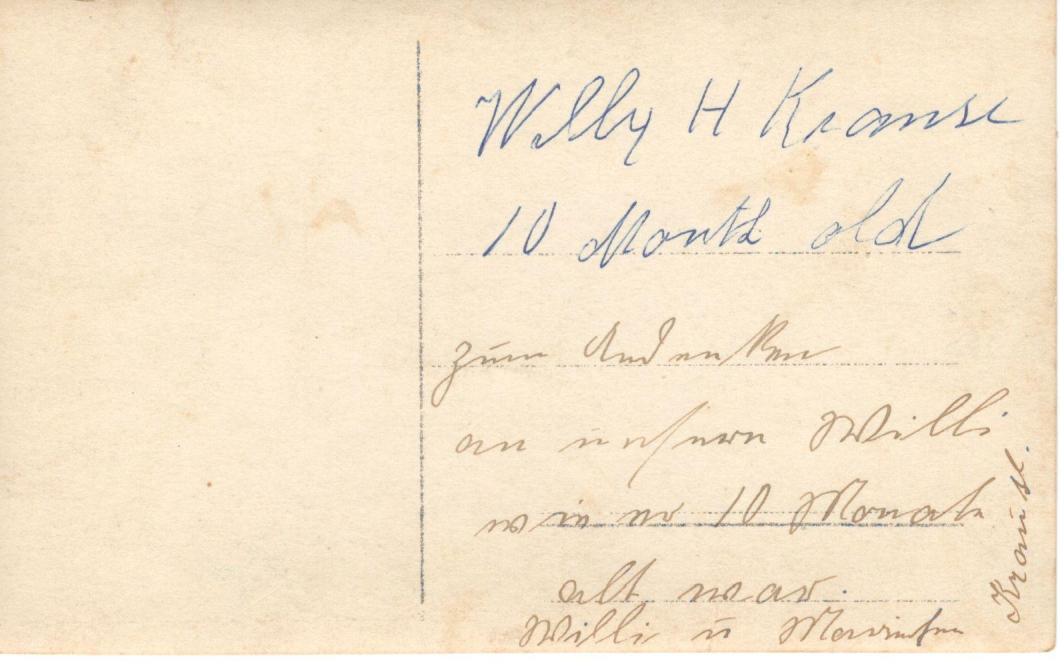 Willy H Krause
10 Month old
zum Andenken
an unsern Willi
wie er 10 Monate
alt war.
Willi u
Krause.